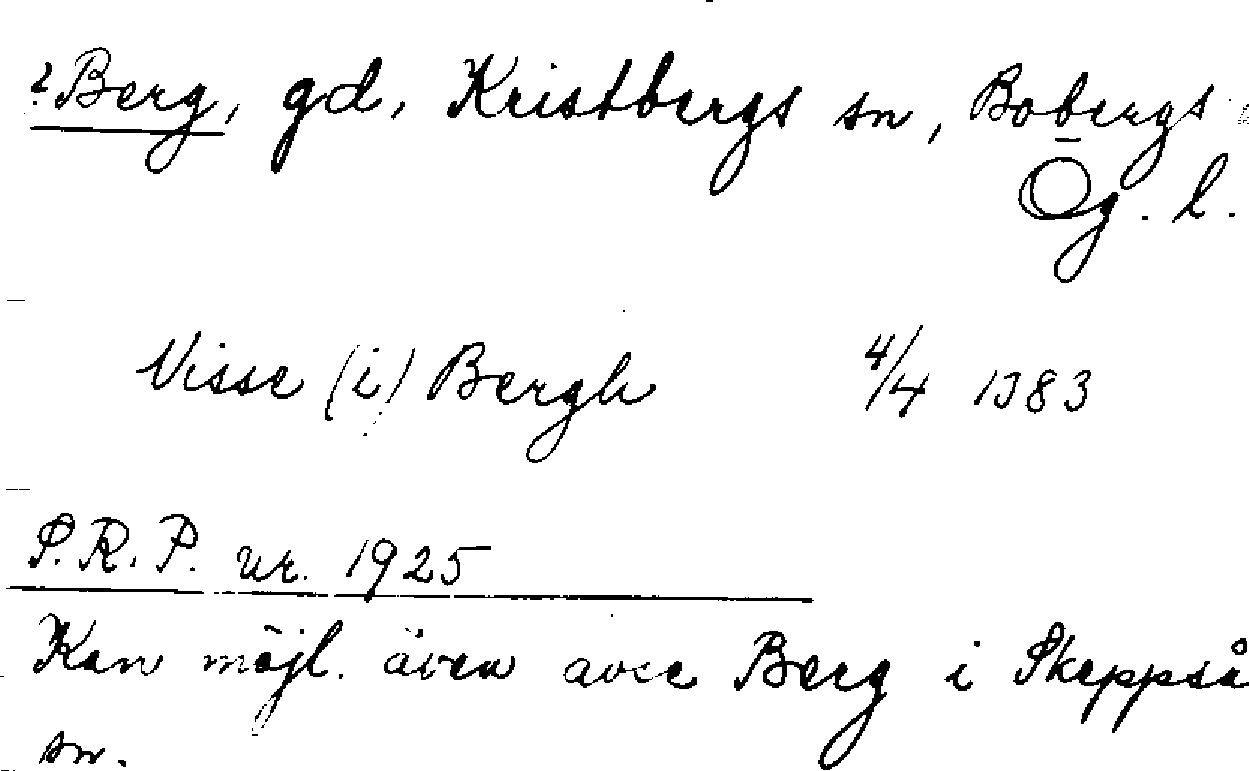 ? Berg, gd, Kristbergs sn, Bobergs
Ög. l.
Visse (i) Bergh 4/4 1383
S.R.P. nr. 1925
Kan möjl. även avse Berg i Skeppså
sn.